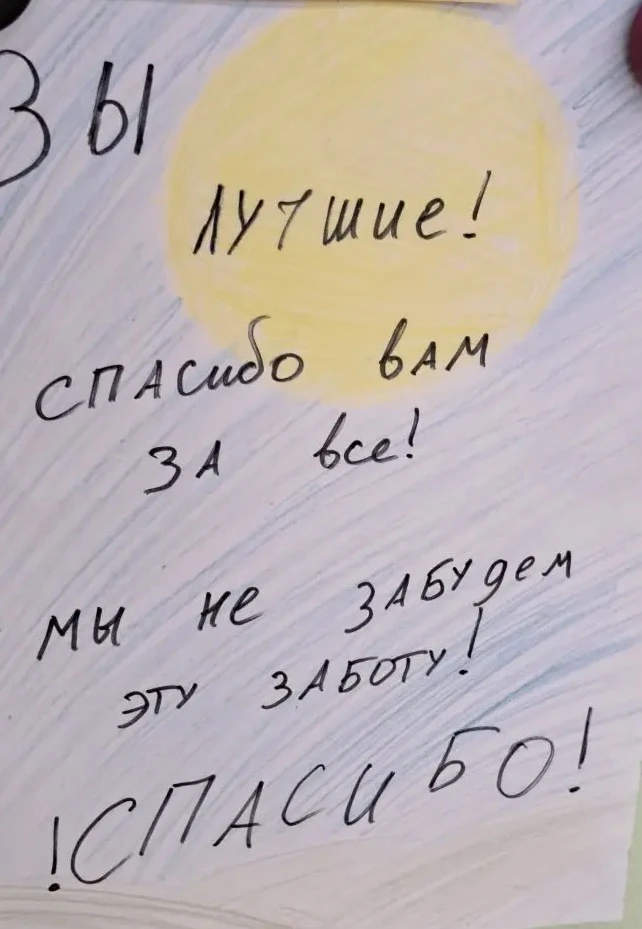 ЗЫ
ЛУЧшие!
СПАСибо вАМ
ЗА все!
МЫ не ЗАБУдем
ЭТУ ЗАБОТУ!
!СПАСИБО!